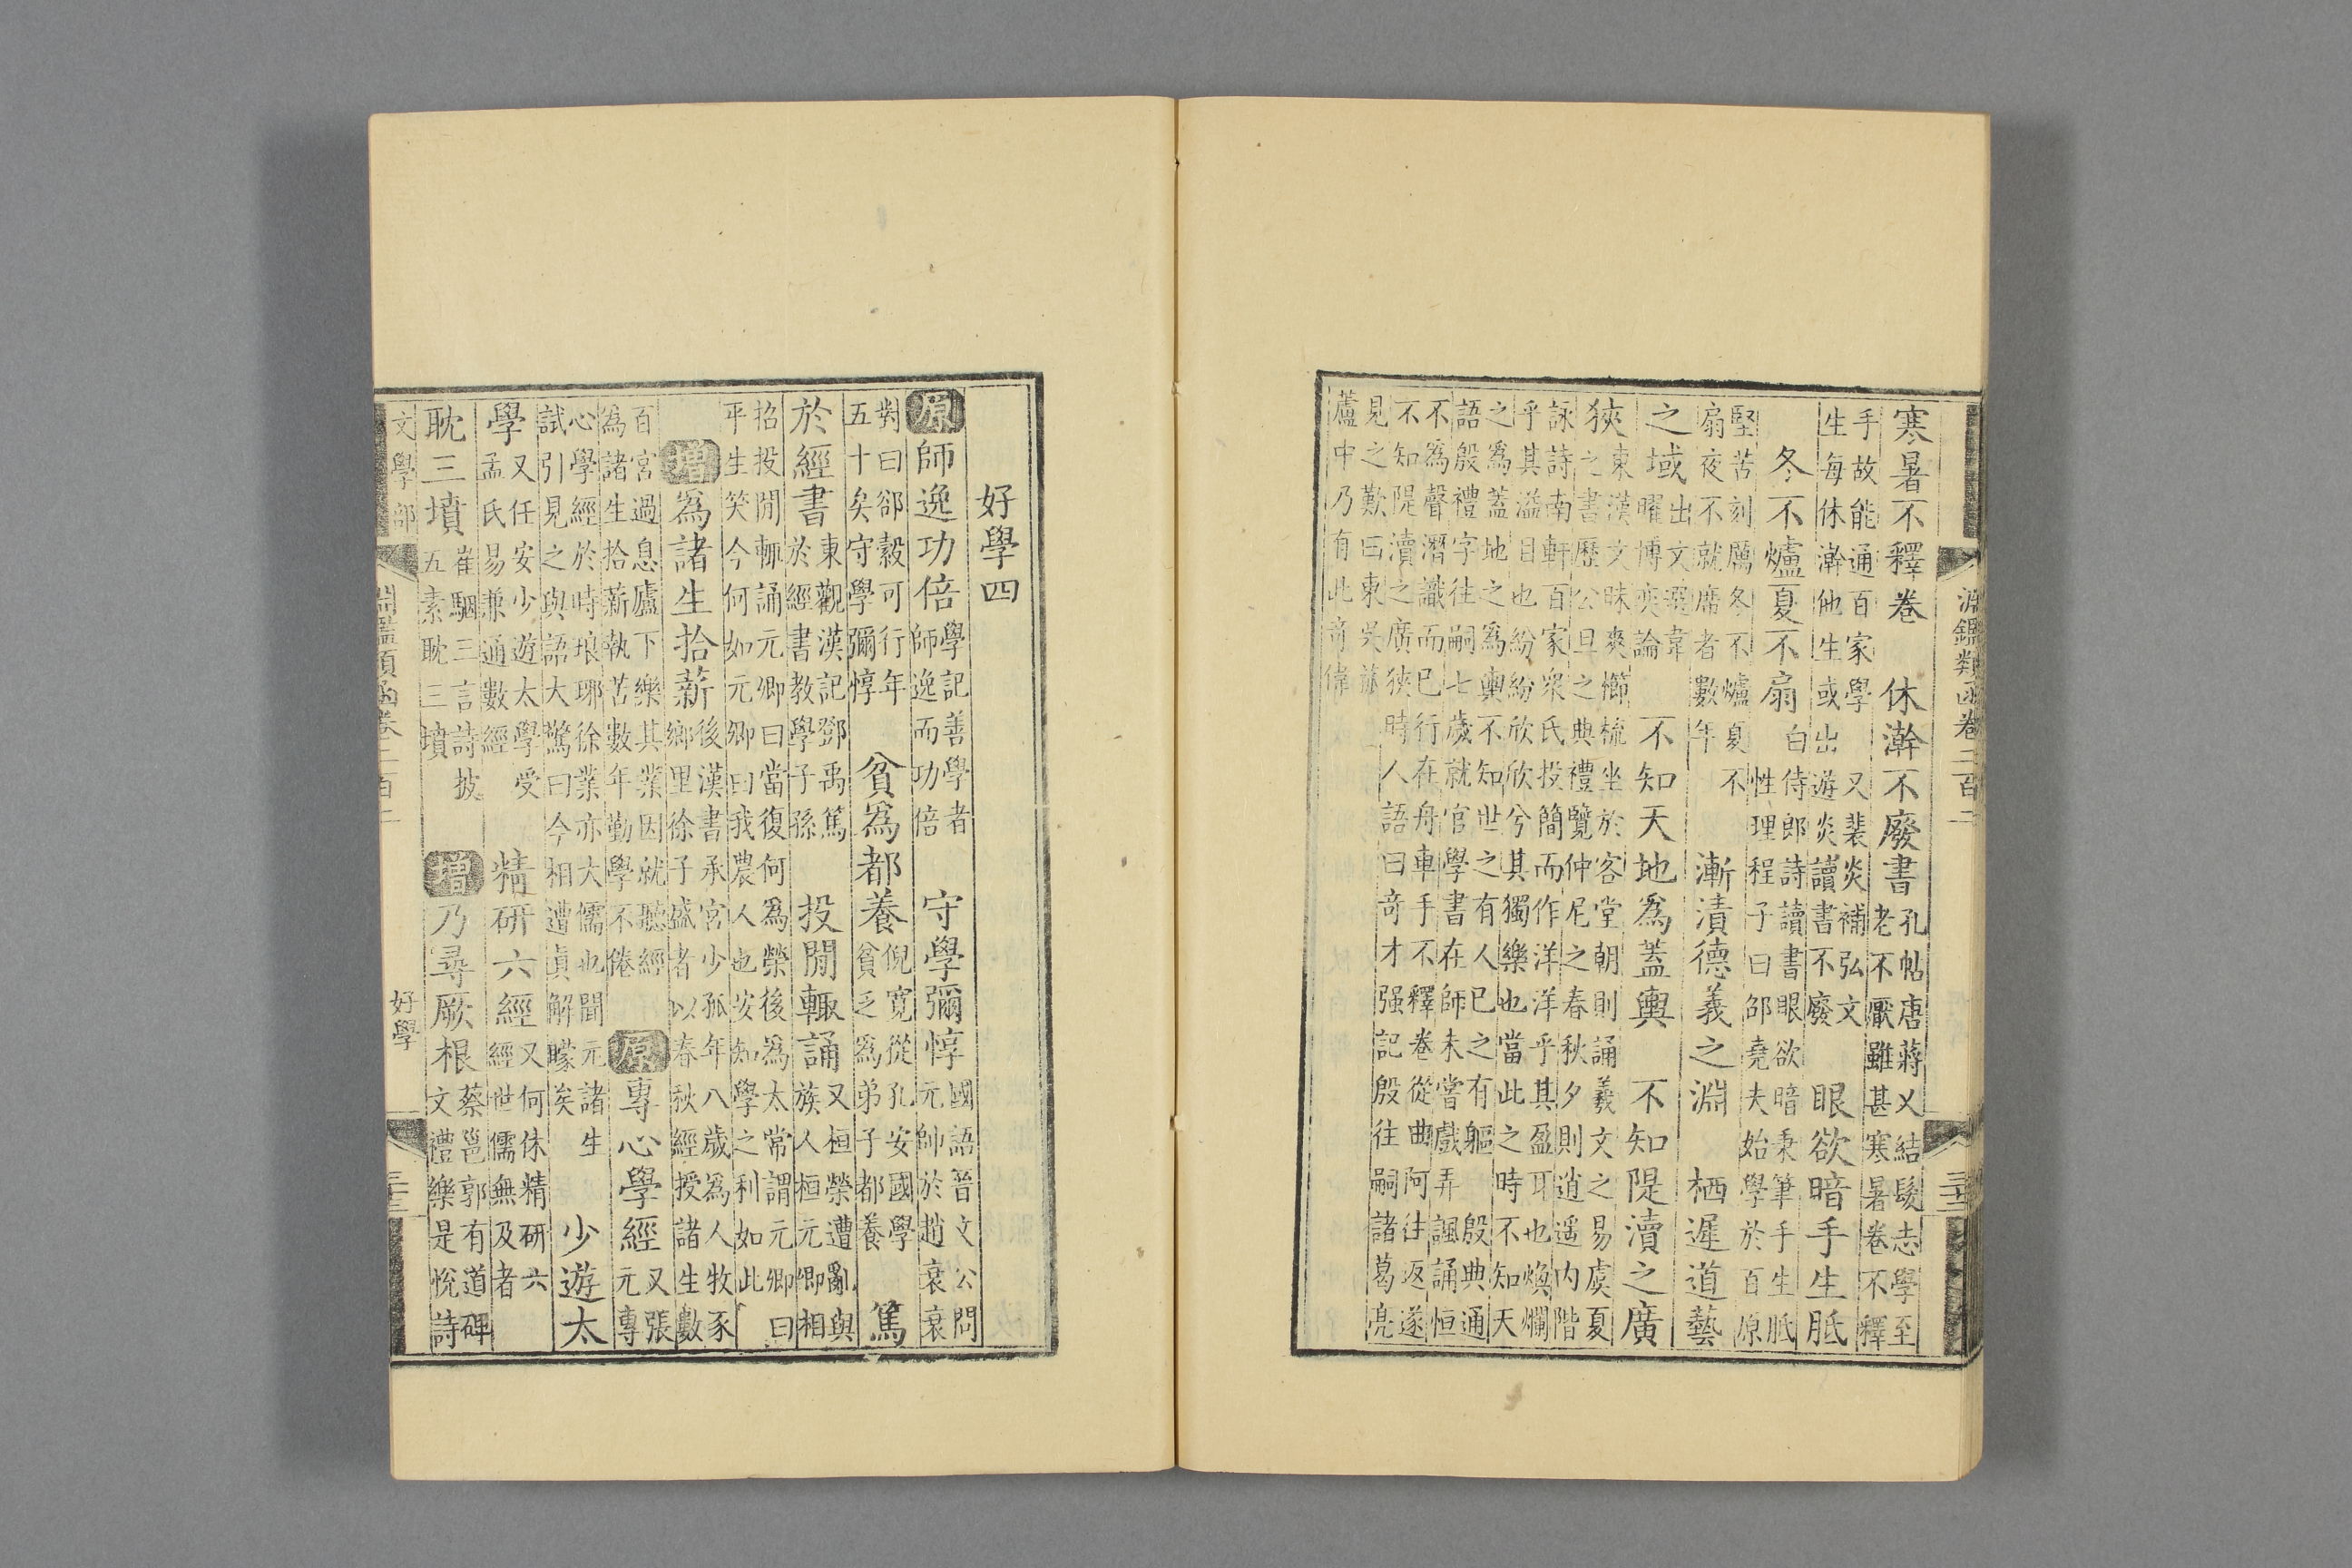 淵鑑類函卷二百二
寒暑不釋卷　休澣不廢書
孔帖唐蔣乂結髮志學至
老不厭雖甚寒暑卷不釋
手故能通百家學　又裴炎補弘文
生每休澣他生或出遊炎讀書不廢
眼欲暗手生胝
冬不爐夏不扇
白侍郎詩讀書眼欲暗秉筆手生胝
性理程子曰邵堯夫始學於百原
堅苦刻厲冬不爐夏不
扇夜不就席者數年
漸漬德義之淵　栖遲道藝
之域
出文選韋
曜博奕論
不知天地爲蓋輿　不知隄瀆之廣
狹
東漢文昧爽櫛梳坐於客堂朝則誦羲文之易虞夏
之書歷公旦之典禮覽仲尼之春秋夕則逍遙内階
詠詩南軒百家衆氏投簡而作洋洋乎其盈耳也煥爛
乎其溢目也紛紛欣欣兮其獨樂也當此之時不知天
之爲蓋地之爲輿不知世之有人已之有軀　殷典通
語殷禮字往嗣七歲就官學書在師未嘗戲弄諷誦恒
不爲聲潛識而已行在舟車手不釋卷從曲阿往返遂
不知隄瀆之廣狹時人語曰奇才强記殷往嗣諸葛亮
見之歎曰東吳菰
蘆中乃有此奇偉
好學四
原師逸功倍
學記善學者
師逸而功倍
守學彌惇
國語晉文公問
元帥於趙衰衰
對曰郤縠可行年
五十矣守學彌惇
貧爲都養
倪寬從孔安國學
貧乏爲弟子都養
篤
於經書
東觀漢記鄧禹篤
於經書教學子孫
投閒輙誦
又桓榮遭亂與
族人桓元卿相
招投閒輙誦元卿曰當復何爲榮後爲太常謂元卿曰
平生笑今何如元卿曰我農人也安知學之利如此
增爲諸生拾薪
後漢書承宮少孤年八歲爲人牧豕
鄉里徐子盛者以春秋經授諸生數
百宮過息廬下樂其業因就聽經
爲諸生拾薪執苦數年勤學不倦
原專心學經
又張
元專
心學經於時琅琊徐業亦大儒也聞元諸生
試引見之與語大驚曰今相遭眞解矇矣
少遊太
學
又任安少遊太學受
孟氏易兼通數經
精研六經
又何休精研六
經世儒無及者
耽三墳
崔駰三言詩披
五素耽三墳
增乃尋厥根
蔡邕郭有道碑
文禮樂是悅詩
文學部
淵鑑類函卷二百二
好學